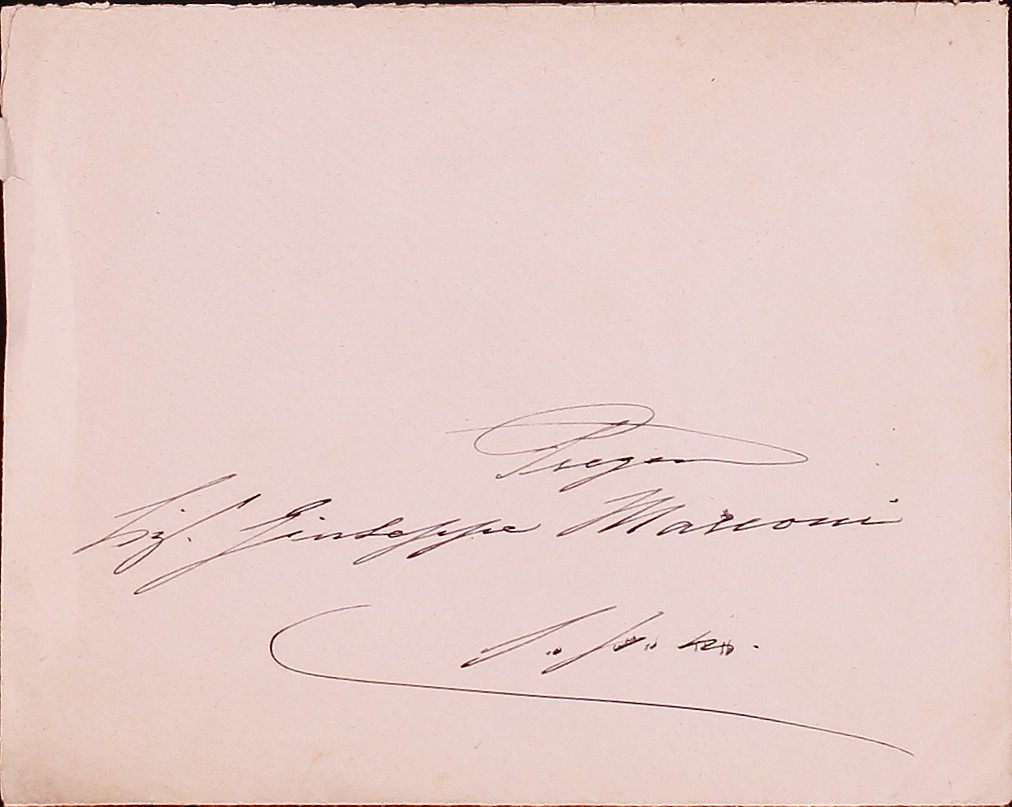 Pregmo
Sig. Giuseppe Marconi
S. P. M.